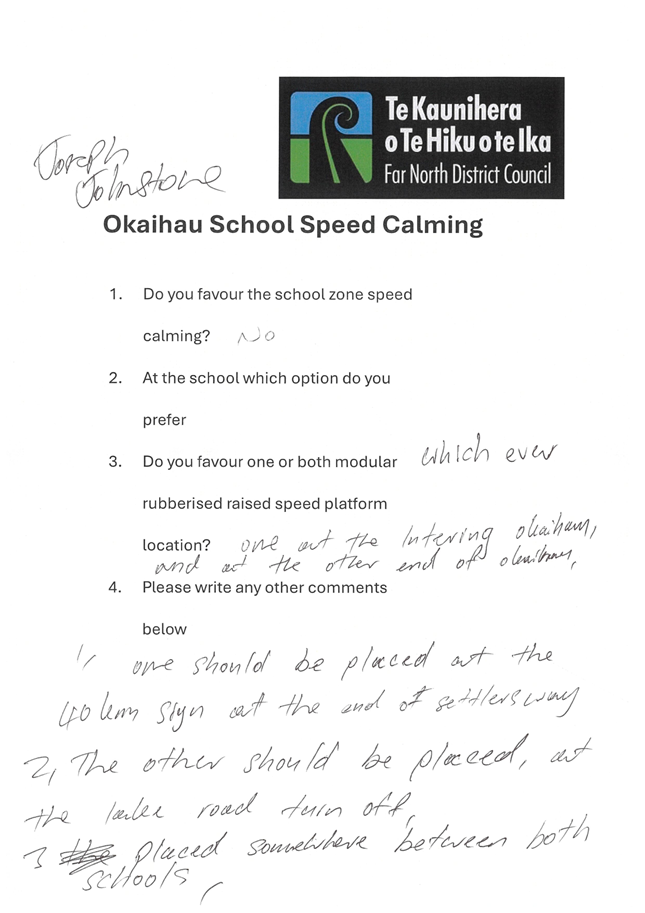 Te Kaunihera
o Te Hiku o te Ika
Far North District Council
Joseph
Johnstone
Okaihau School Speed Calming
1. Do you favour the school zone speed
calming? No
2. At the school which option do you
prefer
3. Do you favour one or both modular which ever
rubberised raised speed platform
location? one at the Intering okaihau,
and at the other end of okaihau,
4. Please write any other comments
below
1, one should be placed at the
40 km sign at the end of settlersway
2, The other should be placed, at
the lake road turn off,
3 placed somewhere between both
schools,